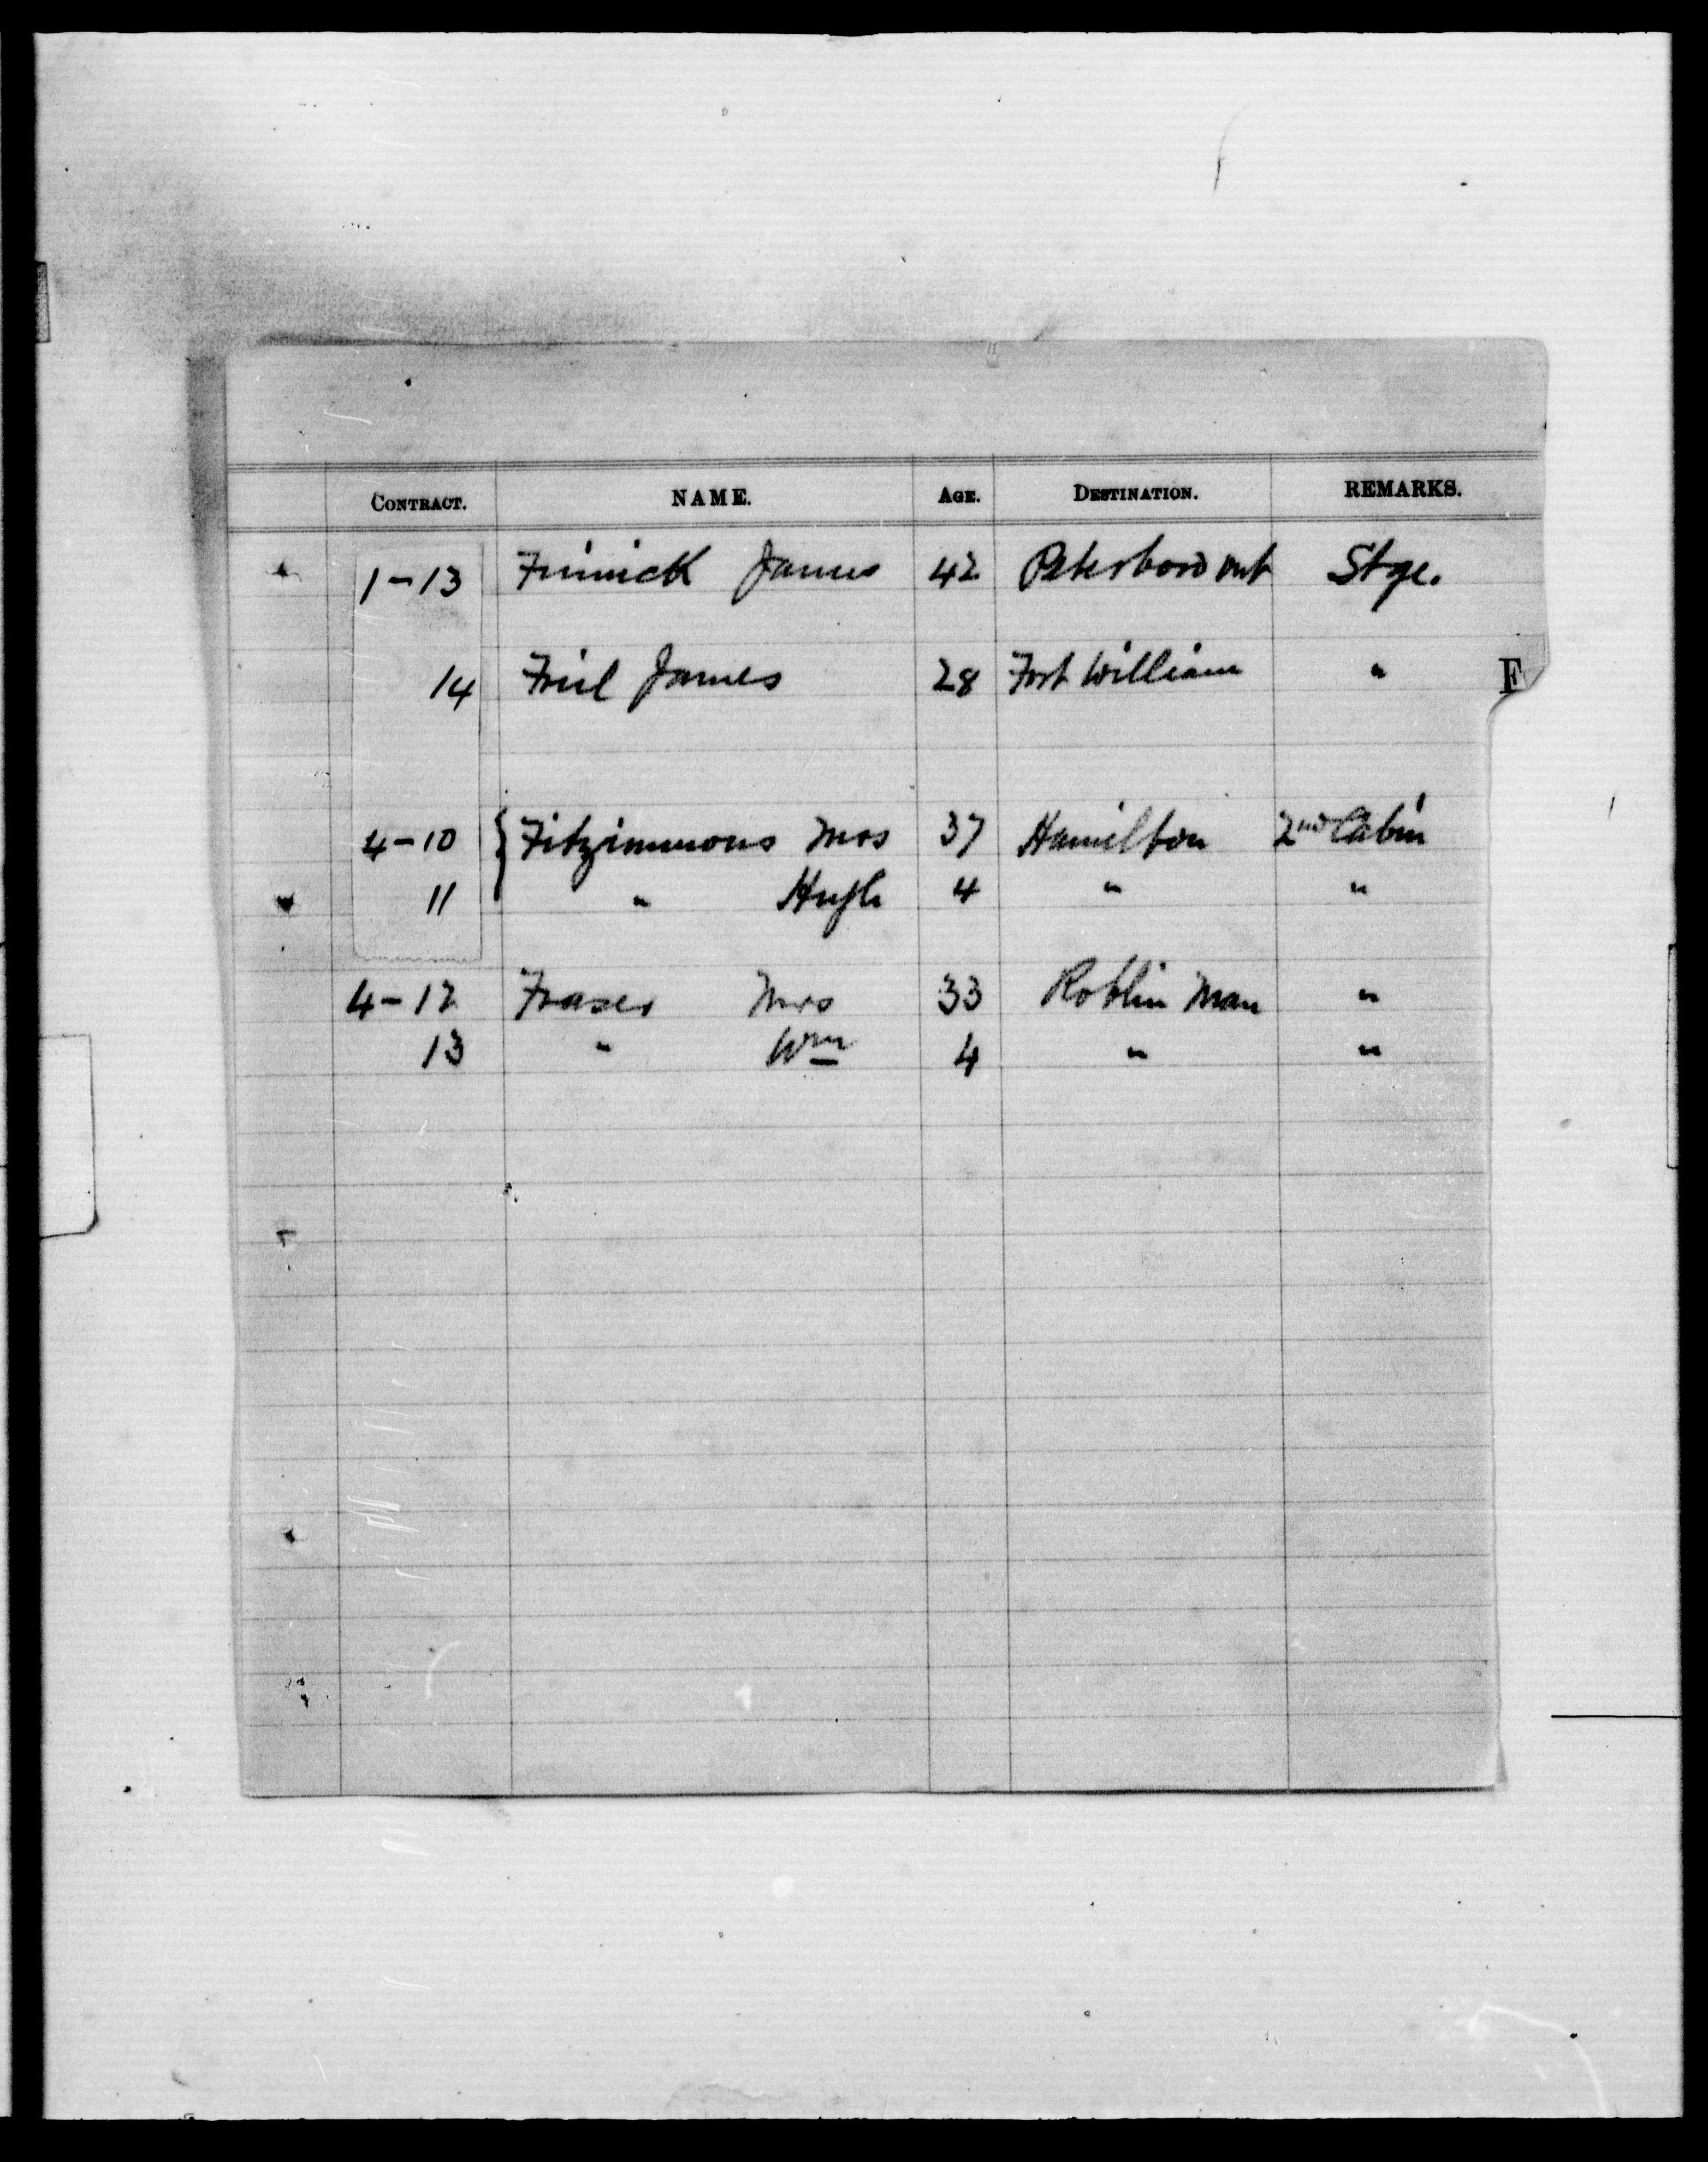 CONTRACT. NAME. AGE. DESTINATION. REMARKS.
1-13 Finnick James 42 Peterboro Ont Stge.
14 Friel James 28 Fort William "
F
4-10 { Fitzimmons Mrs 37 Hamilton 2nd Cabin
11 " Hugh 4 " "
4-12 Fraser Mrs 33 Roblin Man "
13 " Wm 4 " "